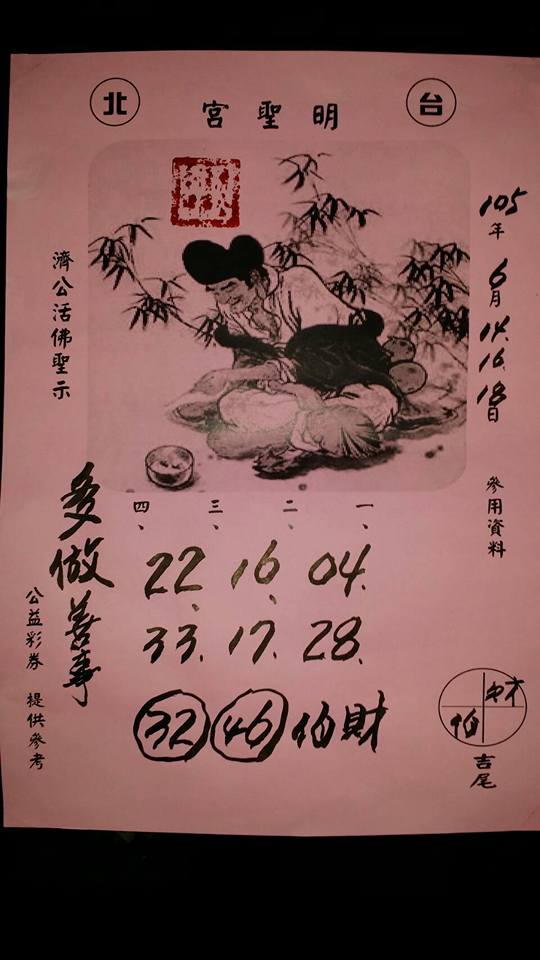 台北
明聖宮
105年6月14.16.18日
參用資料
濟公活佛聖示
一、二、三、四、
04. 16、22、
28. 17. 33.
財伯 46 32
多做善事
公益彩券 提供參考
財伯
吉尾